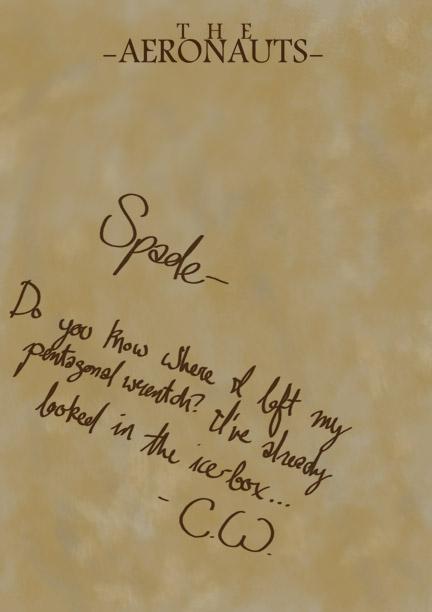 THE
-AERONAUTS-
Spade-
Do you know where I left my
pentagonal wrentch? I've already
looked in the ice-box...
- C.W.